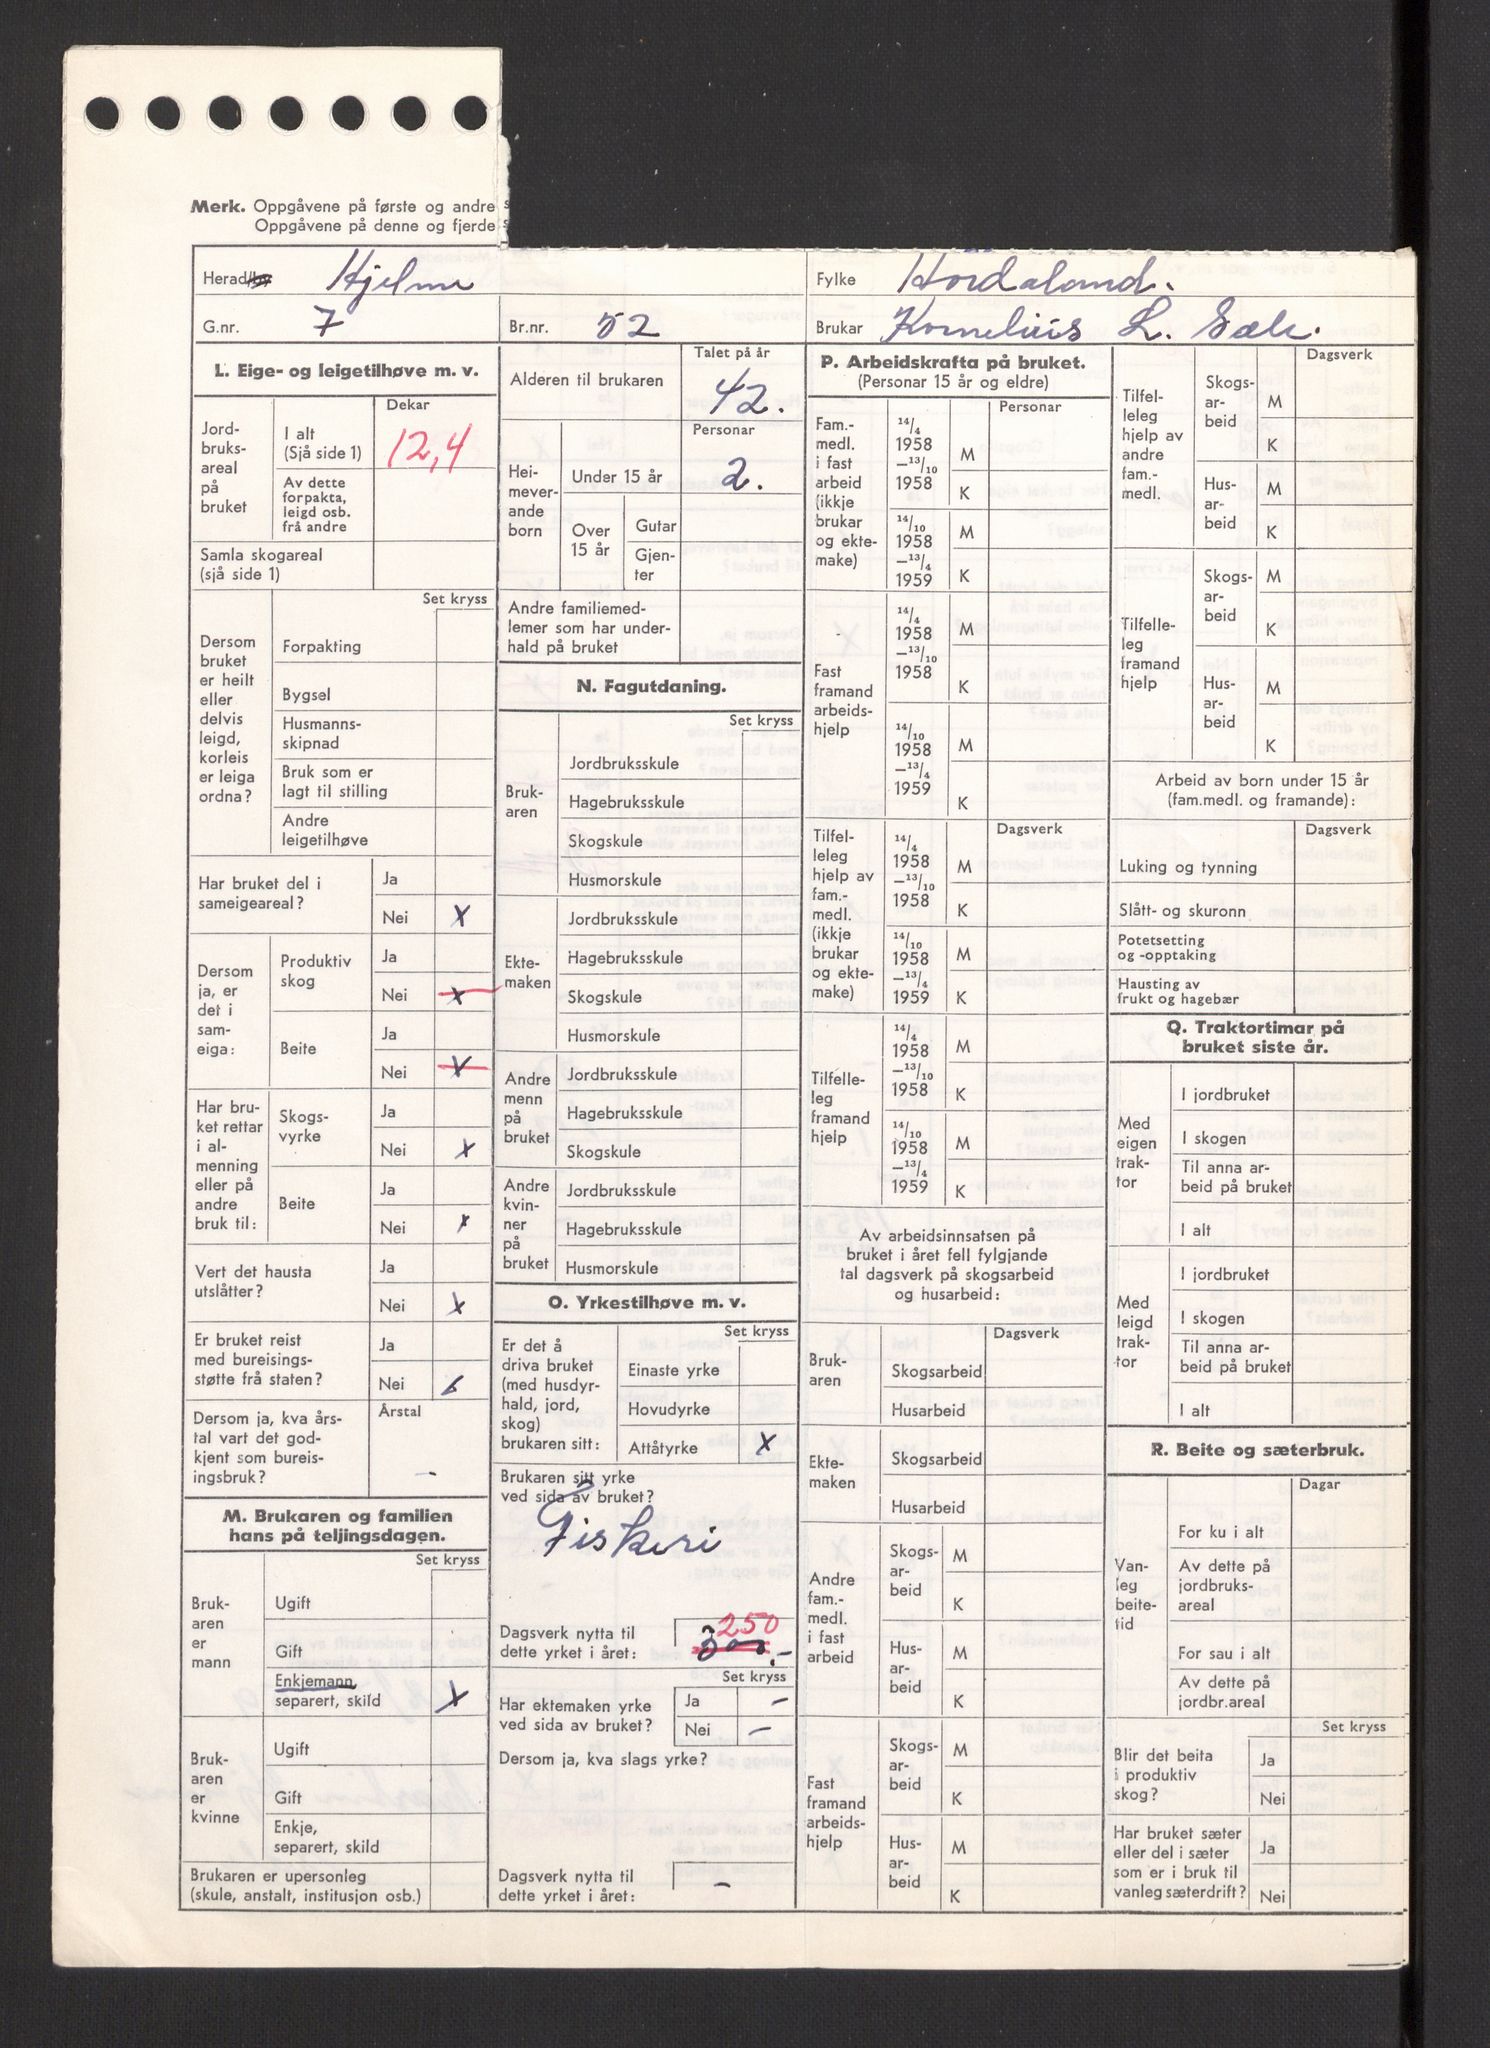 Merk. Oppgåvene på første og andre s
Oppgåvene på denne og fjerde s
Herad/by Hjelme
Fylke Hordaland.
G.nr. 7
Br.nr. 52
Brukar Kornelius L. Sæle.
L. Eige- og leigetilhøve m. v.
Dekar
Jord-
bruks-
areal
på
bruket
I alt
(Sjå side 1)
12,4
Av dette
forpakta,
leigd osb.
frå andre
Samla skogareal
(sjå side 1)
Set kryss
Dersom
bruket
er heilt
eller
delvis
leigd,
korleis
er leiga
ordna?
Forpakting
Bygsel
Husmanns-
skipnad
Bruk som er
lagt til stilling
Andre
leigetilhøve
Har bruket del i
sameigeareal?
Ja
Nei X
Dersom
ja, er
det i
sam-
eiga:
Produktiv
skog
Ja
Nei X
Beite
Ja
Nei X
Har bru-
ket rettar
i al-
menning
eller på
andre
bruk til:
Skogs-
vyrke
Ja
Nei X
Beite
Ja
Nei X
Vert det hausta
utslåtter?
Ja
Nei X
Er bruket reist
med bureisings-
støtte frå staten?
Ja
Nei
Dersom ja, kva års-
tal vart det god-
kjent som bureis-
ingsbruk?
Årstal
–
M. Brukaren og familien
hans på teljingsdagen.
Set kryss
Bruk-
aren
er
mann
Ugift
Gift
Enkjemann,
separert, skild X
Bruk-
aren
er
kvinne
Ugift
Gift
Enkje,
separert, skild
Brukaren er upersonleg
(skule, anstalt, institusjon osb.)
Talet på år
Alderen til brukaren 42.
Personar
Hei-
mever-
ande
born
Under 15 år 2.
Over
15 år
Gutar
Gjen-
ter
Andre familiemed-
lemer som har under-
hald på bruket
N. Fagutdaning.
Set kryss
Bruk-
aren
Jordbruksskule
Hagebruksskule
Skogskule
Husmorskule
Ekte-
maken
Jordbruksskule
Hagebruksskule
Skogskule
Husmorskule
Andre
menn
på
bruket
Jordbruksskule
Hagebruksskule
Skogskule
Andre
kvin-
ner
på
bruket
Jordbruksskule
Hagebruksskule
Husmorskule
O. Yrkestilhøve m. v.
Set kryss
Er det å
driva bruket
(med husdyr-
hald, jord,
skog)
brukaren sitt:
Einaste yrke
Hovudyrke
Attåtyrke X
Brukaren sitt yrke
ved sida av bruket?
Fiskeri
250
Dagsverk nytta til
dette yrket i året: 300.-
Set kryss
Har ektemaken yrke
ved sida av bruket?
Ja –
Nei –
Dersom ja, kva slags yrke?
Dagsverk nytta til
dette yrket i året: –
P. Arbeidskrafta på bruket.
(Personar 15 år og eldre)
Personar
Fam.-
medl.
i fast
arbeid
(ikkje
brukar
og ekte-
make)
14/4
1958
—13/10
1958
M
K
14/10
1958
—13/4
1959
M
K
Fast
framand
arbeids-
hjelp
14/4
1958
—13/10
1958
M
K
14/10
1958
—13/4
1959
M
K
Dagsverk
Tilfel-
leleg
hjelp av
fam.-
medl.
(ikkje
brukar
og ekte-
make)
14/4
1958
—13/10
1958
M
K
14/10
1958
—13/4
1959
M
K
Tilfelle-
leg
framand
hjelp
14/4
1958
—13/10
1958
M
K
14/10
1958
—13/4
1959
M
K
Av arbeidsinnsatsen på
bruket i året fell fylgjande
tal dagsverk på skogsarbeid
og husarbeid:
Dagsverk
Bruk-
aren
Skogsarbeid
Husarbeid
Ekte-
maken
Skogsarbeid
Husarbeid
Andre
fam.-
medl.
i fast
arbeid
Skogs-
ar-
beid
M
K
Hus-
ar-
beid
M
K
Fast
framand
arbeids-
hjelp
Skogs-
ar-
beid
M
K
Hus-
ar-
beid
M
K
Dagsverk
Tilfel-
leleg
hjelp av
andre
fam.-
medl.
Skogs-
ar-
beid
M
K
Hus-
ar-
beid
M
K
Tilfelle-
leg
framand
hjelp
Skogs-
ar-
beid
M
K
Hus-
ar-
beid
M
K
Arbeid av born under 15 år
(fam.medl. og framande):
Dagsverk
Luking og tynning
Slått- og skuronn
Potetsetting
og -opptaking
Hausting av
frukt og hagebær
Q. Traktortimar på
bruket siste år.
Med
eigen
trak-
tor
I jordbruket
I skogen
Til anna ar-
beid på bruket
I alt
Med
leigd
trak-
tor
I jordbruket
I skogen
Til anna ar-
beid på bruket
I alt
R. Beite og sæterbruk.
Dagar
Van-
leg
beite-
tid
For ku i alt
Av dette på
jordbruks-
areal
For sau i alt
Av dette på
jordbr.areal
Set kryss
Blir det beita
i produktiv
skog?
Ja
Nei
Har bruket sæter
eller del i sæter
som er i bruk til
vanleg sæterdrift?
Ja
Nei